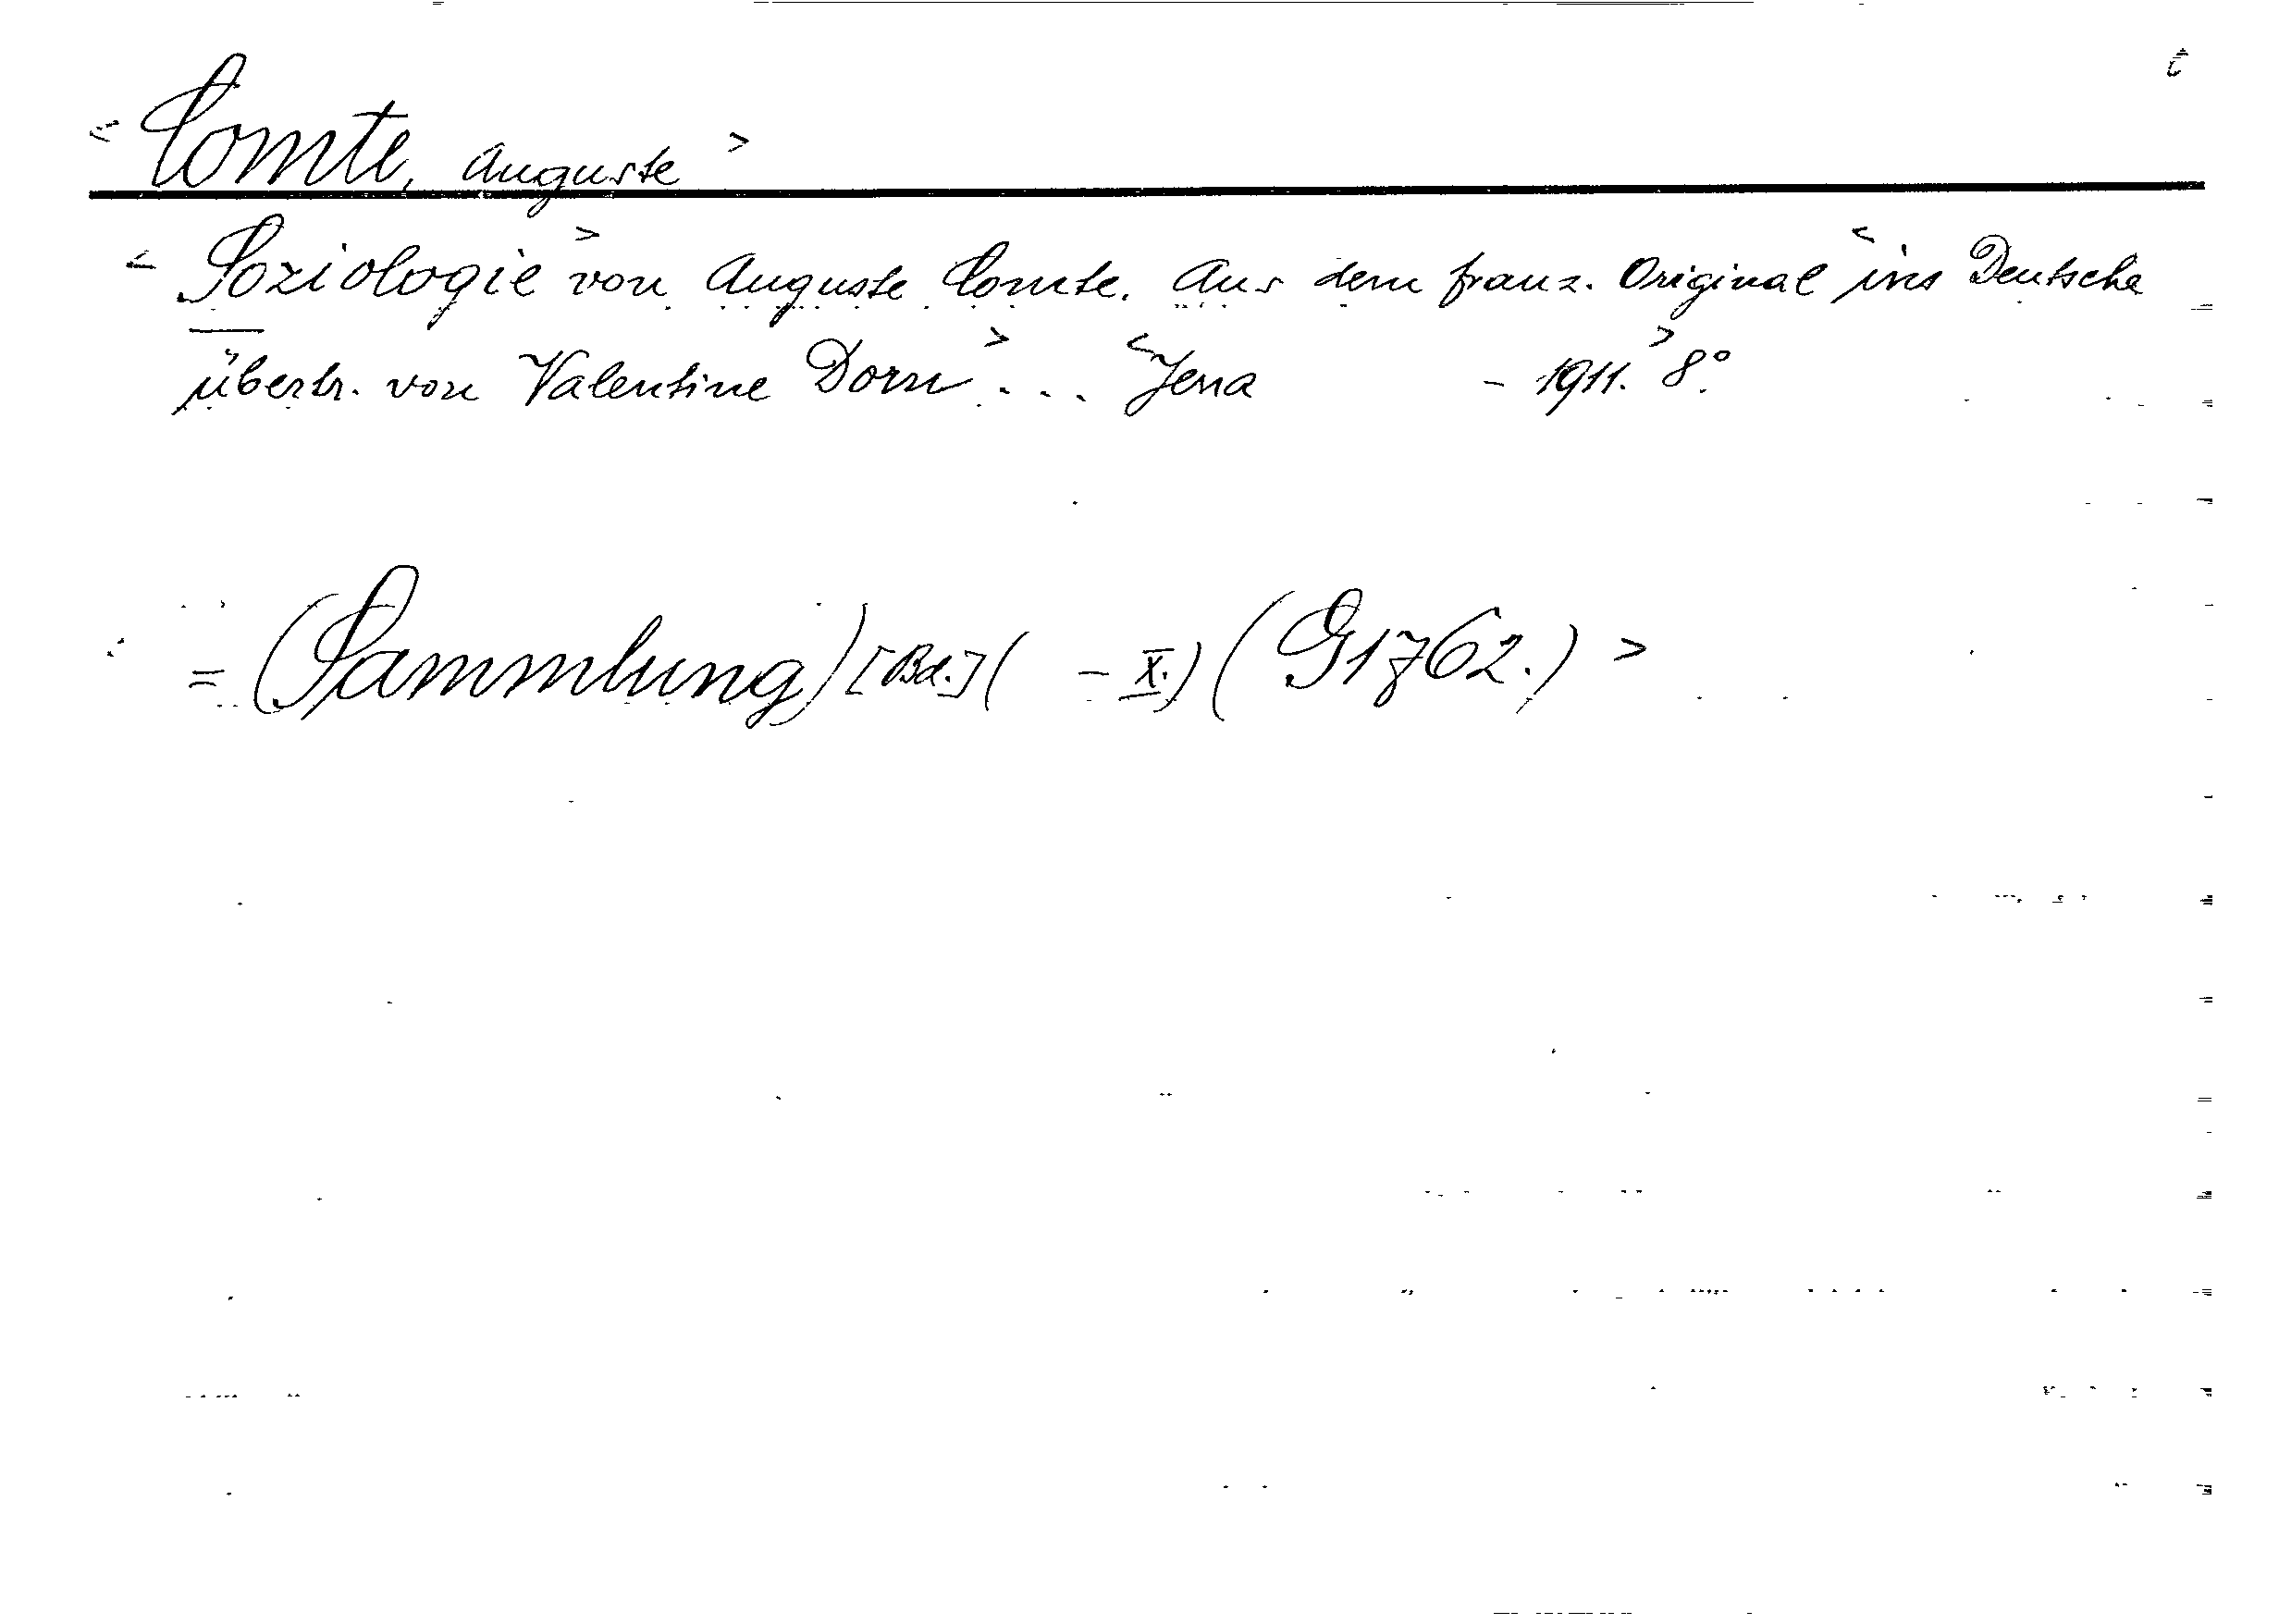 < Comte, Auguste >
< Soziologie > von Auguste Comte. Aus dem franz. Original < ins Deutsche
übertr. von Valentine Dorn > . . . < Jena - 1911. > 8°.
= (Sammlung) [Bd.] ( - X.) (G1762.) >